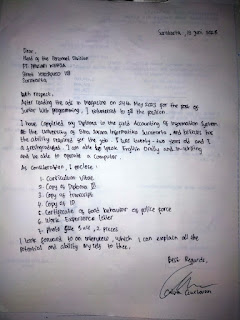 Surakarta, 12 Juni 2023
Dear,
Head of the Personal Division
PT.
Jalan Yosodipuro 118
Surakarta
With respect,
After reading the ads in magazine on 24th May 2023 for the post of
Junior Web programming, I volunteered to fill the position.
I have completed my Diploma in the field Accounting of Information System
at the University of Bina Sarana Informatika Surakarta, and believes has
the ability required for the job. I was twenty-two years old and I
a freshgraduate. I am able to speak English Orally and in-writing
and be able to operate a computer.
As consideration, I enclose :
1. Curriculum Vitae
2. Copy of Diploma III
3. Copy of transcript
4. Copy of ID
5. Certificate of Good behaviour of police force
6. Work Experience letter
7. Photo size 3x4, 2 pieces
I look forward to an interview, which I can explain all the
potential and ability my rely to thee.
Best Regards,